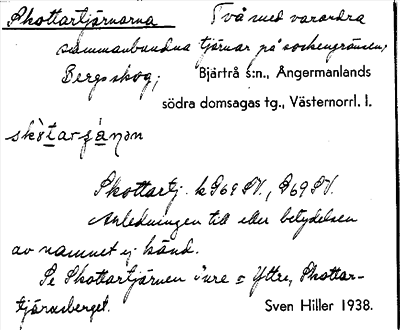 Skottartjärnarna Två med varandra
sammanbundna tjärnar på sockengränsen,
Bergsskog; Bjärtrå s:n., Ångermanlands
södra domsagas tg., Västernorrl. l.
Skottartj. k G69 SV., G69 SV.
Anledningen till eller betydelsen
av namnet ej känd.
Se Skottartjärnen Övre o Yttre, Skottar-
tjärnsberget. Sven Hiller 1938.